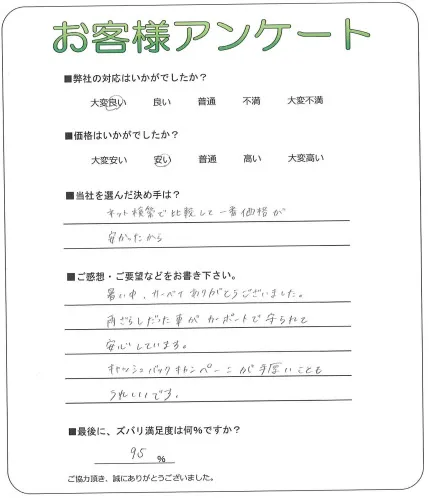 お客様アンケート
■弊社の対応はいかがでしたか？
大変良い 良い 普通 不満 大変不満
■価格はいかがでしたか？
大変安い 安い 普通 高い 大変高い
■当社を選んだ決め手は？
ネット検索で比較して一番価格が
安かったから
■ご感想・ご要望などをお書き下さい。
暑い中、 ありがとうございました。
雨ざらしだった車がカーポートで守られて
安心しています。
キャッシュバックキャンペーンが手厚いことも
うれしいです。
■最後に、ズバリ満足度は何％ですか？
95 ％
ご協力頂き、誠にありがとうございました。